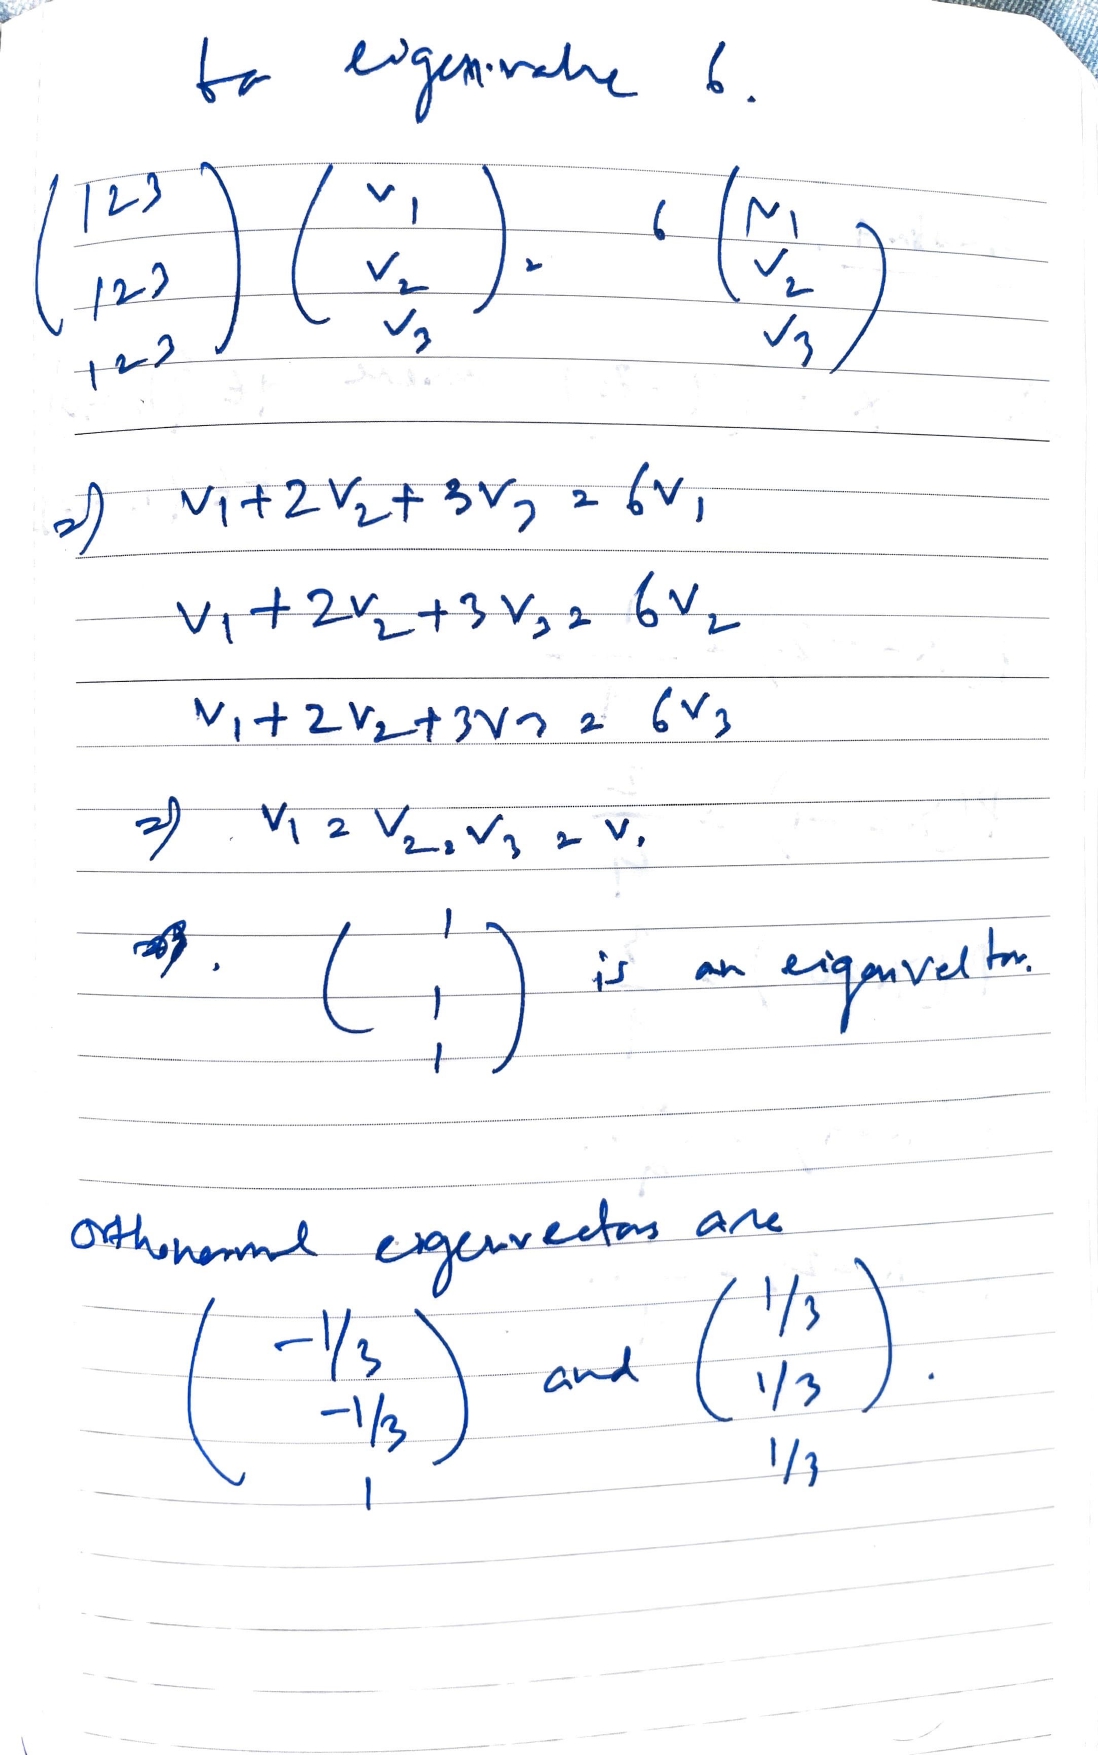 for eigenvalue 6.
( 1 2 3 ) ( v1 ) = 6 ( v1 )
1 2 3 v2 v2
1 2 3 v3 v3
⇒) v1 + 2v2 + 3v3 = 6v1
v1 + 2v2 + 3v3 = 6v2
v1 + 2v2 + 3v3 = 6v3
⇒) v1 = v2 = v3 = v.
( 1 1 1 ) is an eigenvector.
orthonormal eigenvectors are
( -1/3 ) and ( 1/3 ).
-1/3 1/3
1 1/3